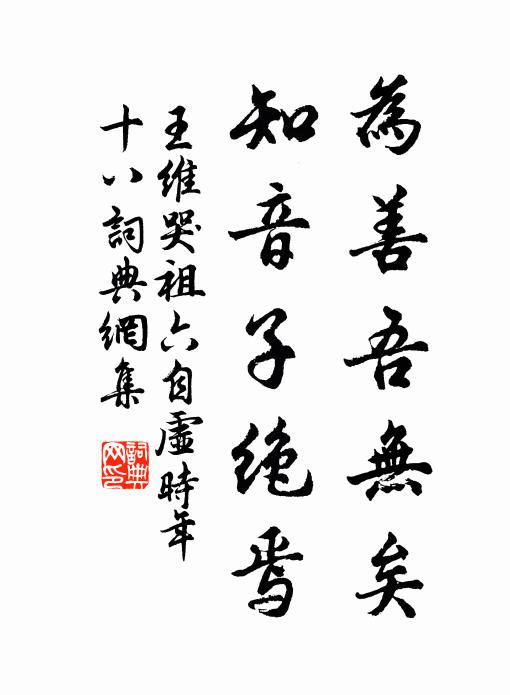 為善吾無矣
知音子絶焉
王維哭祖六自虛時年
十八詞典網集
詞典網印